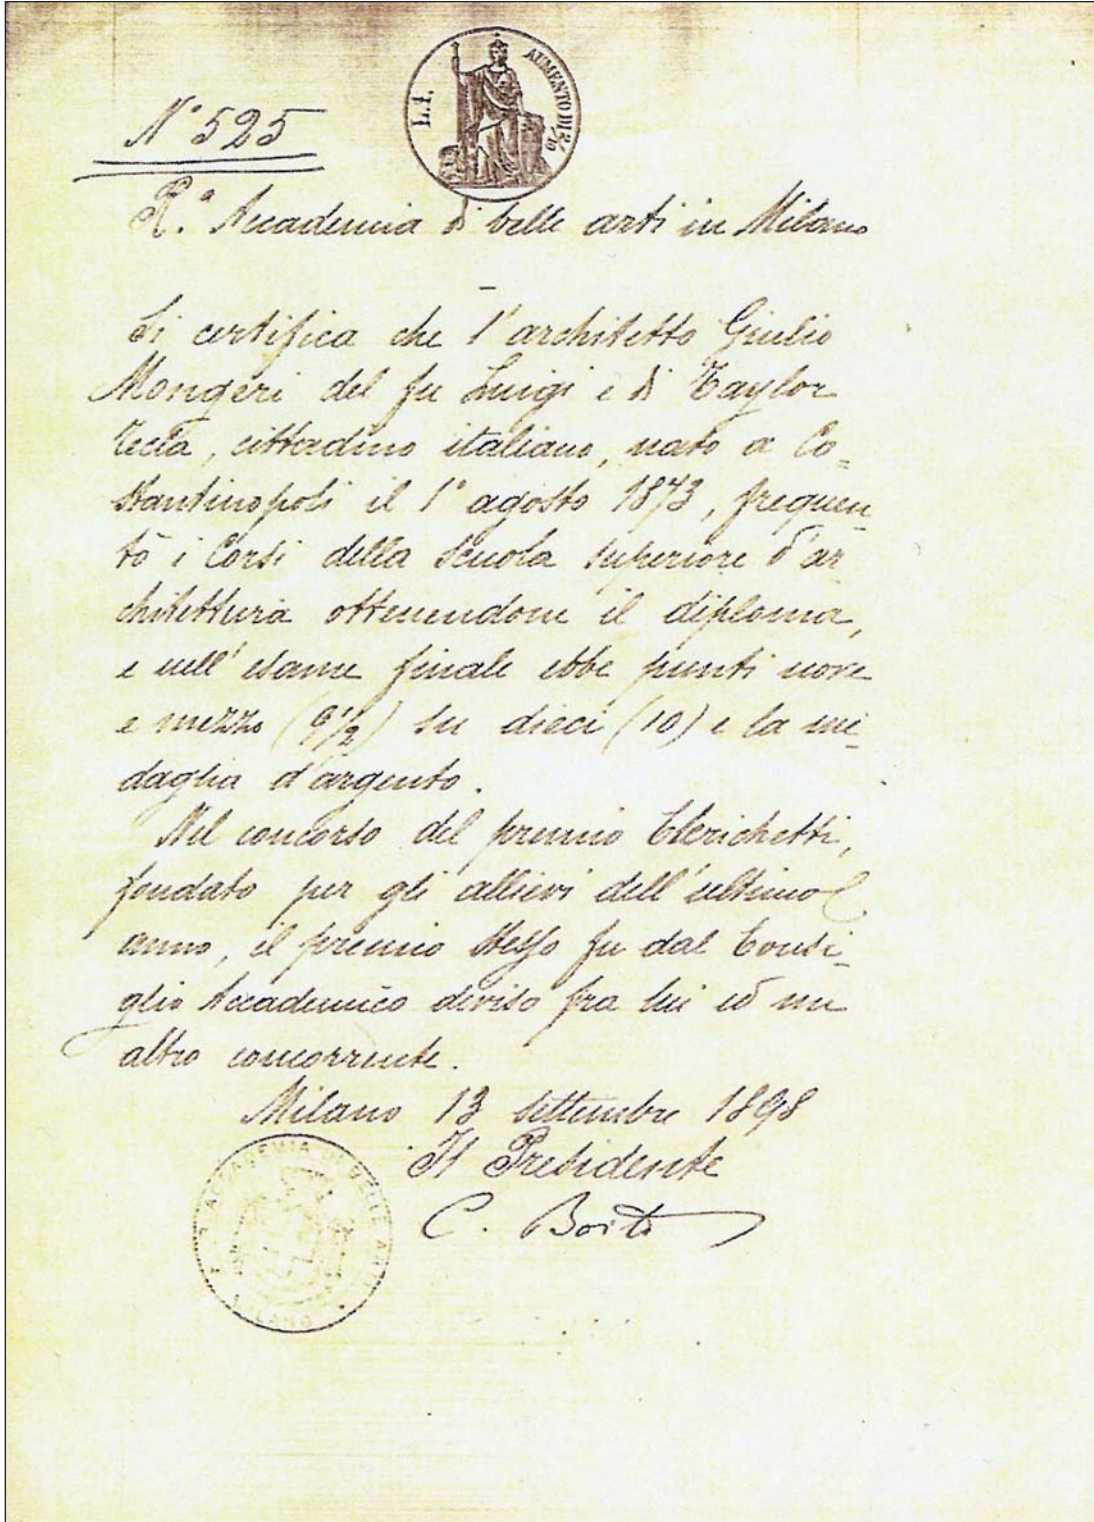 L. 1.
AUMENTO DI 2/10
N° 525
R.ª Accademia di belle arti in Milano
Si certifica che l'architetto Giulio
Mongeri del fu Luigi e di Taylor
Tecla, cittadino italiano, nato a Co=
stantinopoli il 1° agosto 1873, frequen-
tò i Corsi della Scuola superiore d'ar
chitettura ottenendone il diploma,
e nell'esame finale ebbe punti nove
e mezzo (9 1/2) su dieci (10) e la me-
daglia d'argento.
Nel concorso del premio Clerichetti,
fondato per gli allievi dell'ultimo
anno, il premio stesso fu dal Consi-
glio Accademico diviso fra lui ed un
altro concorrente.
Milano 13 settembre 1898
Il Presidente
C. Boito
ACCADEMIA DI BELLE ARTI